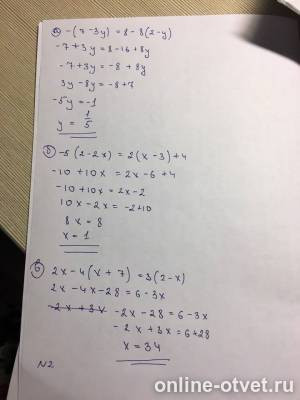 а) -(7-3y)=8-8(2-y)
-7+3y=8-16+8y
-7+3y=-8+8y
3y-8y=-8+7
-5y=-1
y=1/5
б) -5(2-2x)=2(x-3)+4
-10+10x=2x-6+4
-10+10x=2x-2
10x-2x=-2+10
8x=8
x=1
в) 2x-4(x+7)=3(2-x)
2x-4x-28=6-3x
-2x+3x -2x-28=6-3x
-2x+3x=6+28
x=34
N2
online-otvet.ru